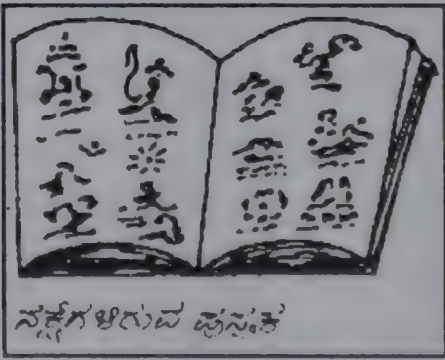 ನಕ್ಷೆಗಳಿರುವ ಪುಸ್ತಕ